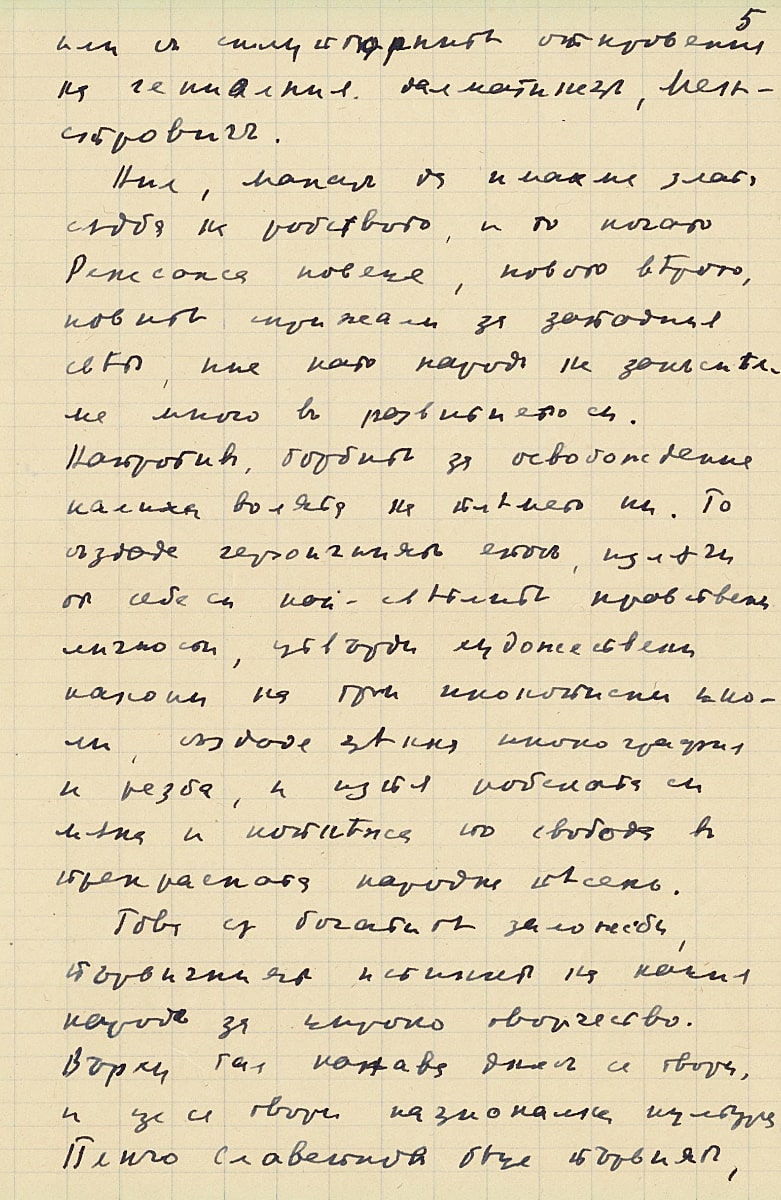 5
или съ скулптурнитѣ откровения
на гениалния далматинецъ, Мещ-
тровичъ.
Ние, макаръ да имахме злата
сѫдба на робството, и то когато
Ренесанса повея, новото вѣтро,
новитѣ скрижали за западния
свѣтъ, ние като народъ не закъснѣх-
ме много въ развитието си.
Напротивъ, борбитѣ за освобождение
калиха волята на племето ни. То
създаде героичния епосъ, излъчи
отъ себе си най-свѣтлитѣ нравствени
личности, утвърди художествени
канони на три иконописни шко-
ли, създаде цѣнна иконография
и резба, и изля робската си
мѫка и копнежа по свобода въ
прекрасната народна пѣсень.
Това сѫ богатитѣ заложби,
първичниятъ истинктъ на нашия
народъ за широко творчество.
Върху тая канава днесъ се твори,
и ще се твори национална култура
Пенчо Славейковъ бѣше първиятъ,